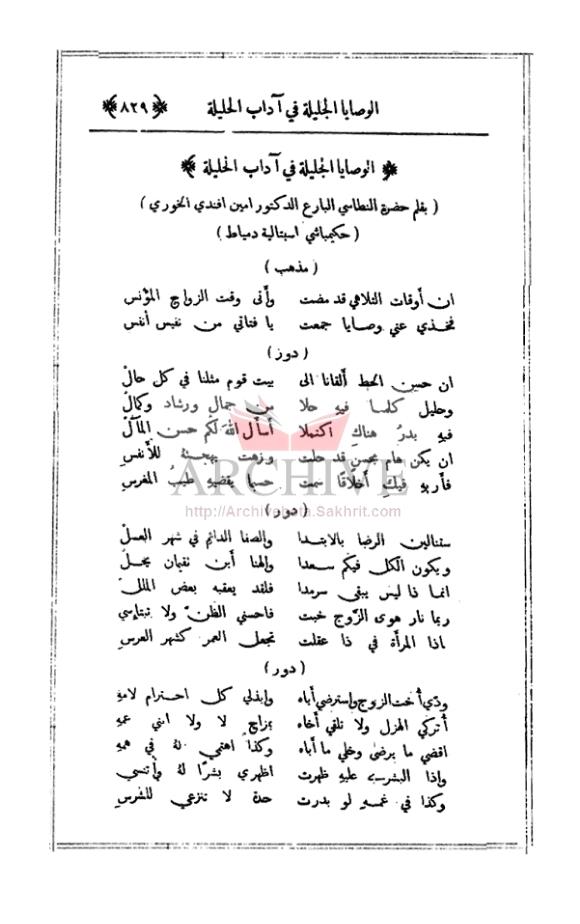 الوصايا الجليلة في آداب الحليلة ﴿٨٢٩﴾
﴿ الوصايا الجليلة في آداب الحليلة ﴾
( بقلم حضرة النطاسي البارع الدكتور امين افندي الخوري )
( حكيمباشي اسبتالية دمياط )
( مذهب )
ان أوقات التلاهي قد مضت وأتى وقت الزواج المؤنس
فخذي عني وصايا جمعت يا فتاتي من نفيس أنفس
( دور )
ان حسن الحظ ألقانا الى بيت قوم مثلنا في كل حالْ
وحليل كلما فيه حلا من جمال ورشاد وكمالْ
فيه بدرٌ هناكِ اكتملا أسأل اللهَ لكم حسن المآلْ
ان يكن هام بحسن قد حلت وزهت بهجتهُ للأنفسِ
فأريهِ فيكِ أخلاقًا سمت حسبما يقضيهِ طيبُ المغرسِ
ARCHIVE
http://Archivebeta.Sakhrit.com
( دور )
ستنالين الرضا بالابتدا والصفا الدائم في شهر العسلْ
ويكون الكل فيكم سعدا والهنا أين تقيمان يحلْ
انما ذا ليس يبقى سرمدا فلقد يعقبه بعض المللْ
ربما نار هوى الزّوج خبت فاحسني الظنّ ولا تبتإسي
اذا المرأة في ذا عقلت تجعل العمر كشهر العرسِ
( دور )
ودّي أخت الزوج واسترضي أباه وابذلي كل احترام لامهِ
أتركي الهزل ولا تلقي أخاه بمزاح لا ولا ابني عمهِ
اقضي ما يرضى وخلي ما أباه وكذا اهتمي لهُ في همهِ
واذا البشر عليهِ ظهرت اظهري بشرًا لهُ وأتنسي
وكذا في غمهِ لو بدرت حدة لا تنزعي للشرسِ